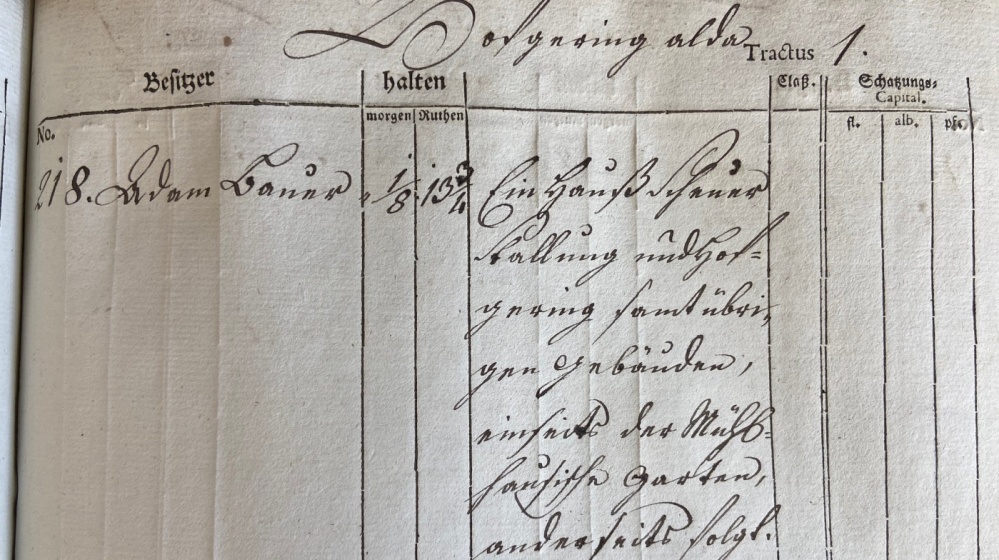 Hofgering alda Tractus 1.
Besitzer halten Claß. Schatzungs-
Capital.
No. morgen Ruthen fl. alb. pf.
218. Adam Bauer 1/8. 13 3/4 Ein Hauß Scheuer
Stallung und Hof=
gering samt übri,
gen Gebäuden,
einseits der Mühl=
hausische Garten,
anderseits folgt.